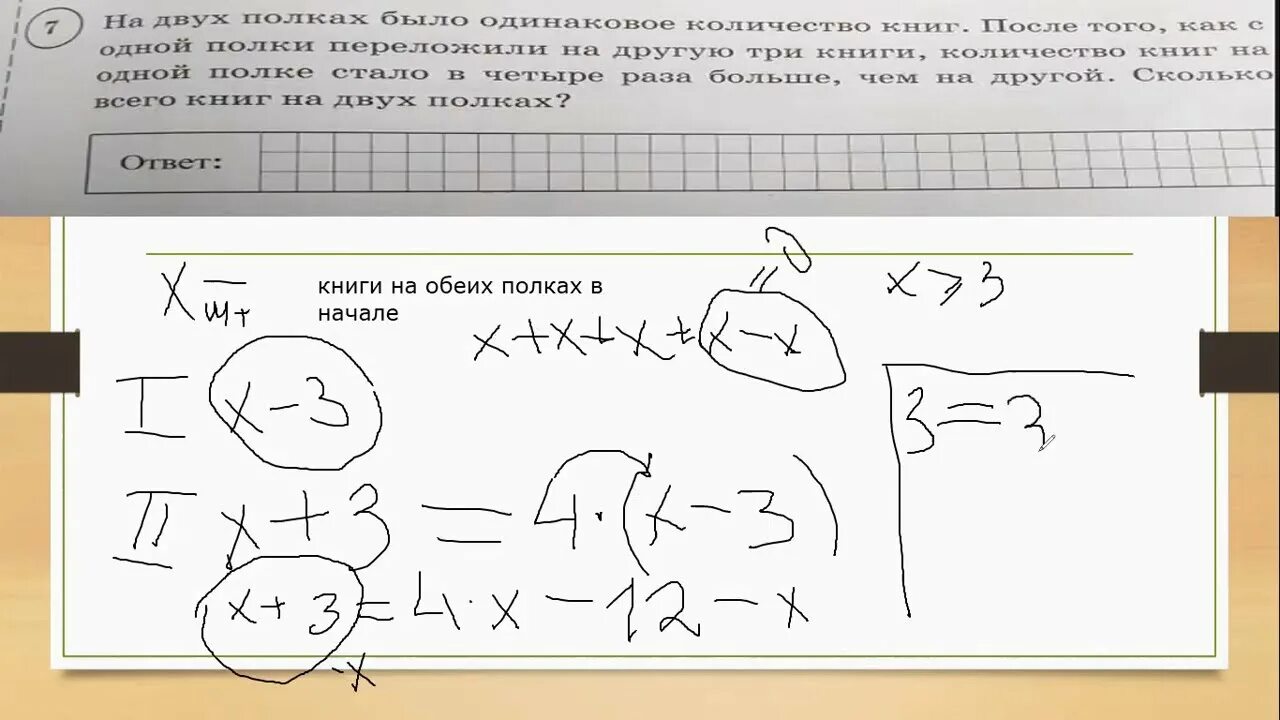 7 На двух полках было одинаковое количество книг. После того, как с
одной полки переложили на другую три книги, количество книг на
одной полке стало в четыре раза больше, чем на другой. Сколько
всего книг на двух полках?
Ответ:
x – шт
книги на обеих полках в
начале
x+x+x+x-x
=0
x ⩾ 3
I x-3
3=3
II x+3 = 4·(x-3)
x+3 = 4·x-12-x
-x